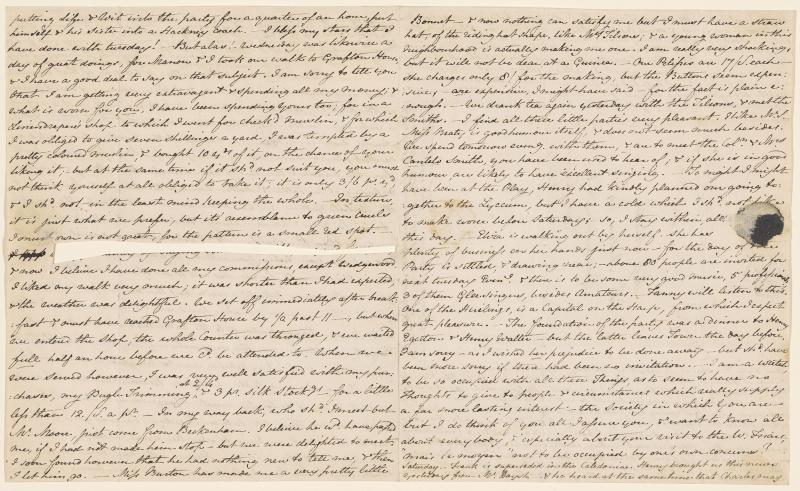 putting Life & Wit into the party for a quarter of an hour, put
himself & his sister into a Hackney coach. — I bless my stars that I
have done with tuesday! — But alas! — Wednesday was likewise a
day of great doings, for Manon & I took our walk to Grafton House,
& I have a good deal to say on that subject. I am sorry to tell you
that I am getting very extravagant & spending all my money; &
what is worse for you, I have been spending yours too; for in a
Linendraper's shop to which I went for check'd muslin, & for which
I was obliged to give seven shillings a yard, I was tempted by a
pretty coloured muslin, & bought 10 yds of it, on the chance of your
liking it; — but at the same time if it shd not suit you, you must
not think yourself at all obliged to take it; it is only 3/6 pr yd,
& I shd not in the least mind keeping the whole. — In texture,
it is just what we prefer, but its' resemblance to green cruels
I must own is not great, for the pattern is a small red spot. —
& now I believe I have done all my commissions, except Wedgwood.
I liked my walk very much; it was shorter than I had expected,
& the weather was delightful. We set off immediately after break-
fast & must have reached Grafton House by 1/2 past 11 —, but when
we entered the Shop, the whole Counter was thronged, & we waited
full half an hour before we cd be attended to. When we
were served however, I was very well satisfied with my pur-
chases, my Bugle Trimming at 2/4d & 3 pr silk Stockgs for a little
less than 12./S. a pr — In my way back, who shd I meet but
Mr Moore, just come from Beckenham. I believe he wd have passed
me, if I had not made him stop — but we were delighted to meet.
I soon found however that he had nothing new to tell me, & then
I let him go. — Miss Burton has made me a very pretty little
Bonnet — & now nothing can satisfy me but I must have a straw
hat, of the riding hat shape, like Mrs Tilson's; & a young woman in this
neighbourhood is actually making me one. I am really very shocking;
but it will not be dear at a Guinea. — Our Pelisses are 17/S. each —
she charges only 8/ for the making, but the Buttons seem expen-
sive; — are expensive, I might have said — for the fact is plain e-
nough. — We drank tea again yesterday with the Tilsons, & met the
Smiths. — I find all these little parties very pleasant. I like Mr S.
Miss Beaty is goodhumour itself, & does not seem much besides.
We spend tomorrow eveng with them, & are to meet the Coln & Mrs
Cantelo Smith, you have been used to hear of; & if she is in good
humour, are likely to have excellent singing. — To night I might
have been at the Play, Henry had kindly planned our going to-
gether to the Lyceum, but I have a cold which I shd not like
to make worse before Saturday; — so, I stay within, all
this day. — Eliza is walking out by herself. She has
plenty of business on her hands just now — for the day of the
Party is settled, & drawing near; — above 80 people are invited for
next tuesday Eveng & there is to be some very good music, 5 professionals,
3 of them Glee-singers, besides Amateurs. — Fanny will listen to this.
One of the Hirelings, is a Capital on the Harp, from which I expect
great pleasure. — The foundation of the party was a dinner to Henry
Egerton & Henry Walter — but the latter leaves Town the day before.
I am sorry — as I wished her prejudice to be done away — but shd have
been more sorry if there had been no invitation. — I am a wretch
to be so occupied with all these Things, as to seem to have no
Thoughts to give to people & circumstances which really supply
a far more lasting interest — the Society in which you are —
but I do think of you all I assure you, & want to know all
about everybody, & especially about your visit to the W. Friars;
"mais le moyen" not to be occupied by one's own concerns? —
Saturday. — Frank is superseded in the Caledonia. Henry brought us this news
yesterday from Mr Daysh — & he heard at the same time that Charles may